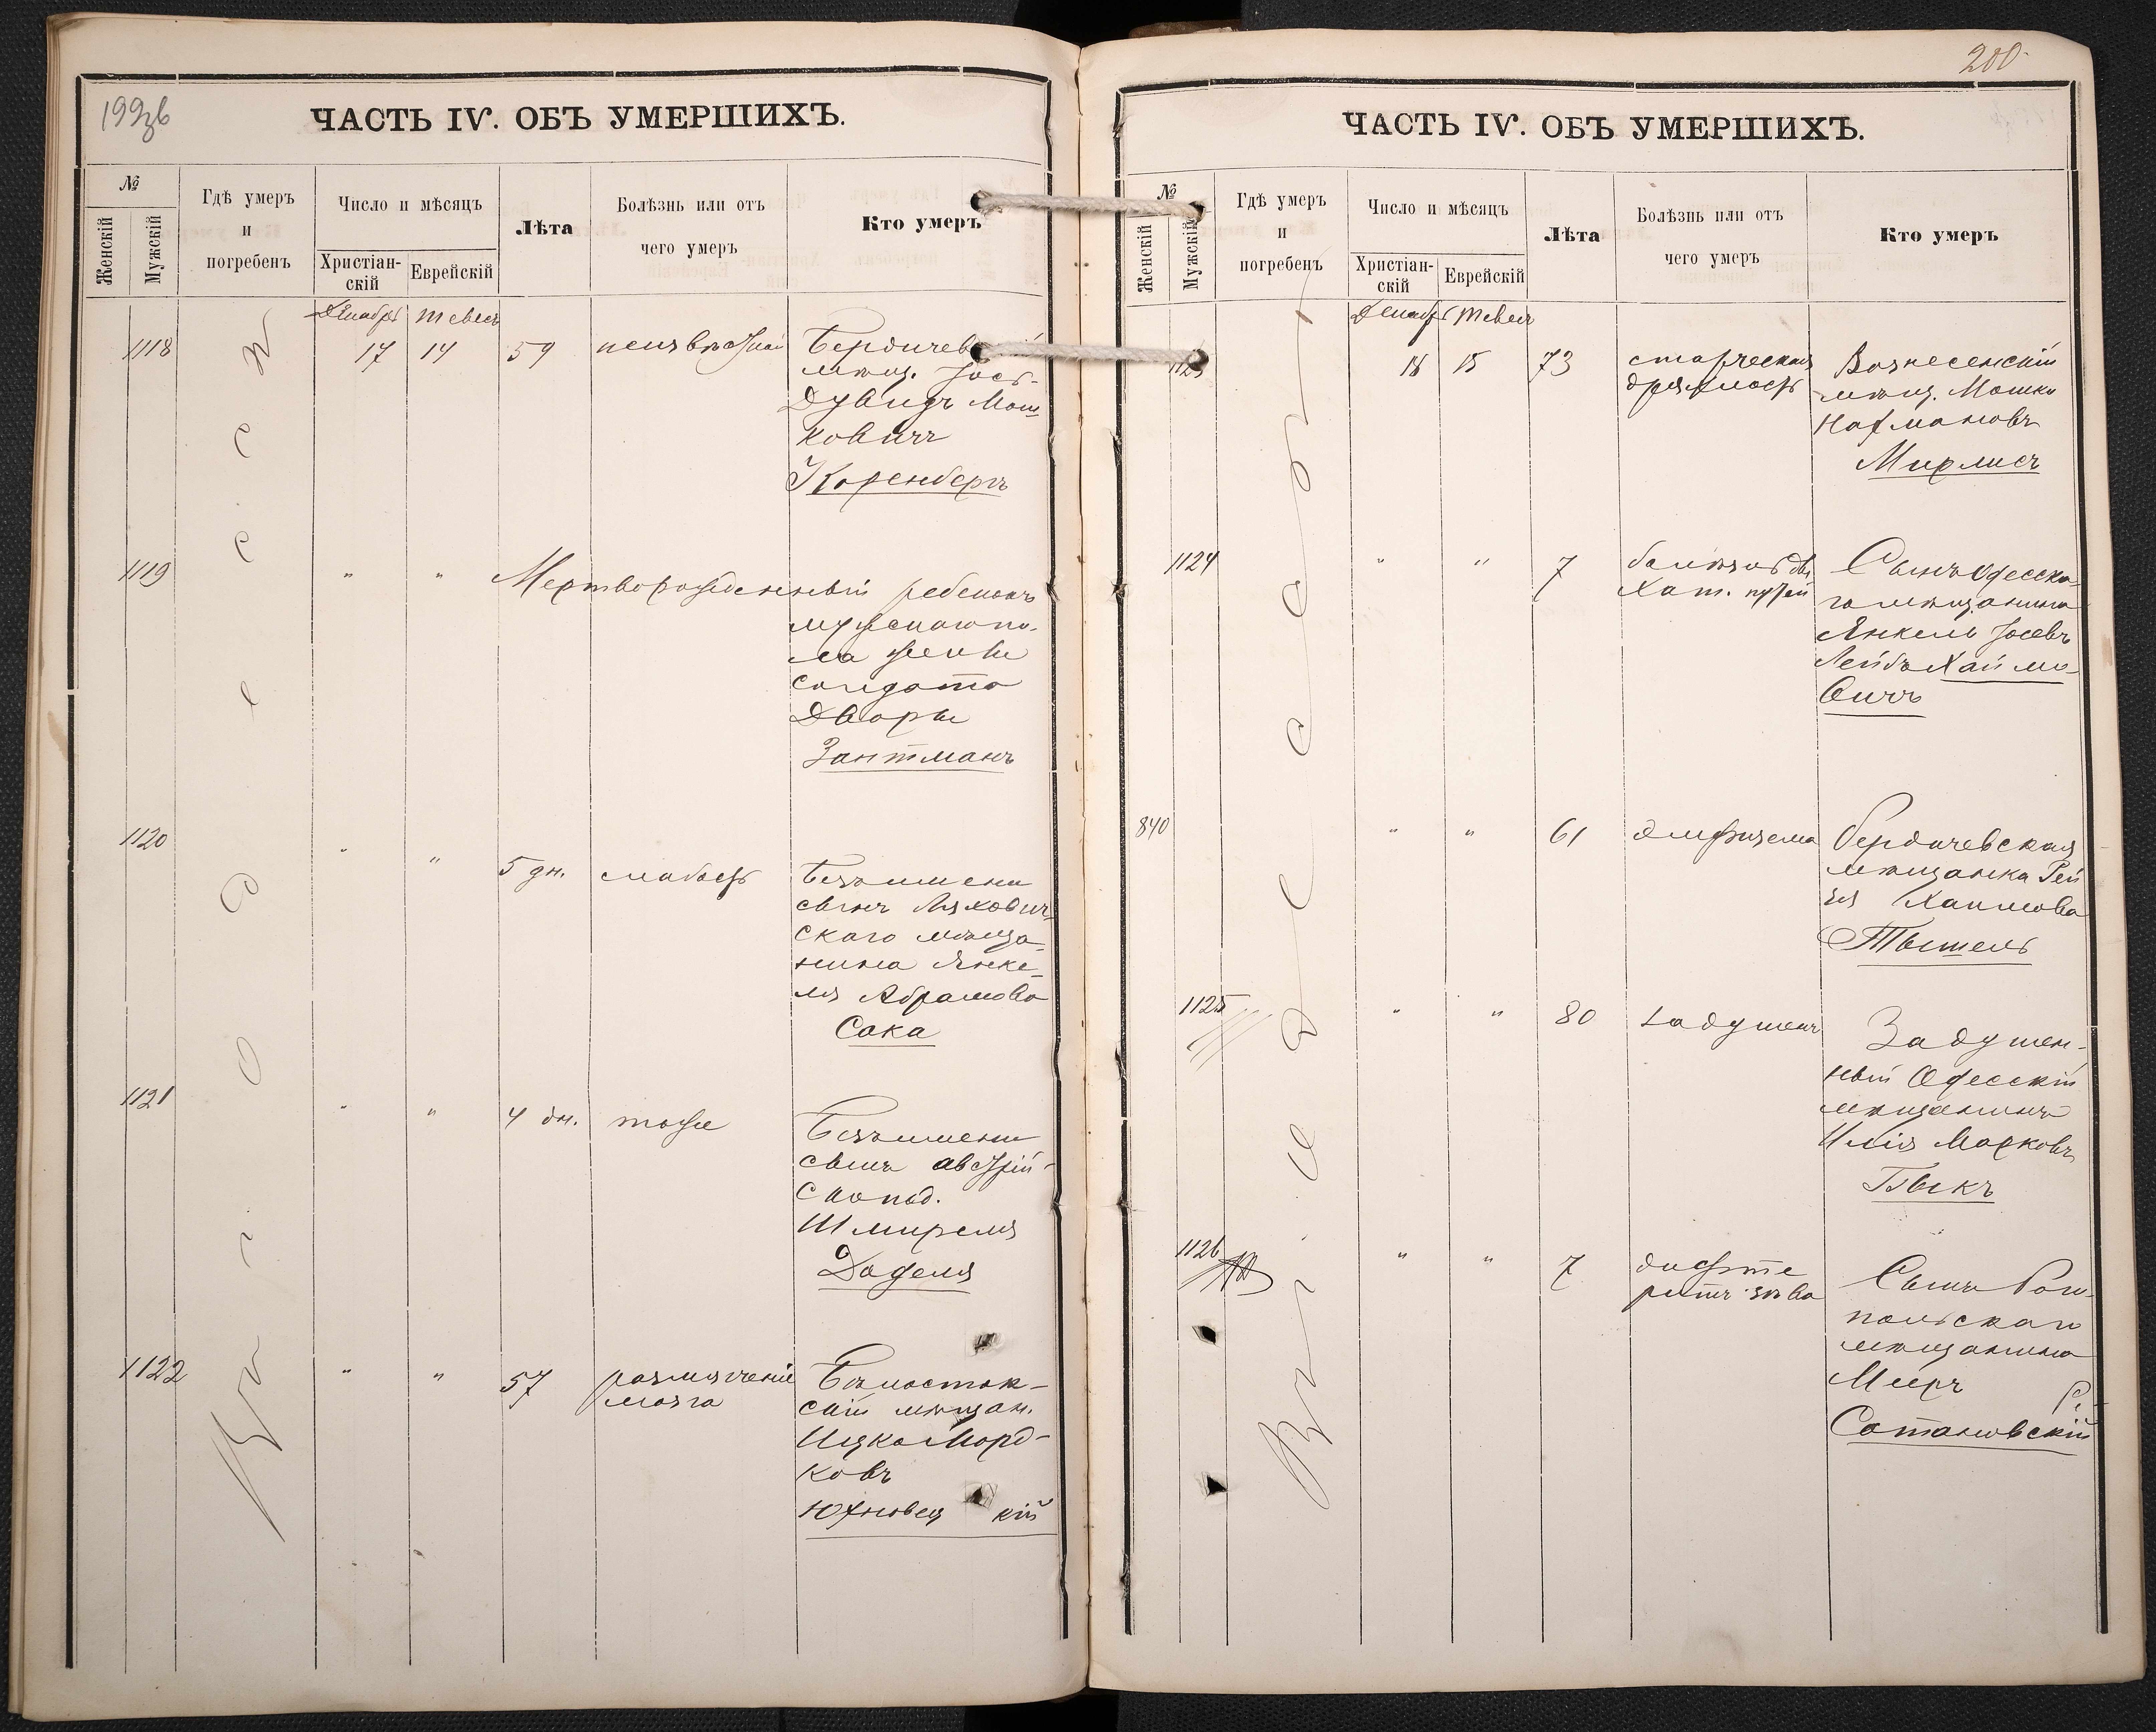 199зв
ЧАСТЬ IV. ОБЪ УМЕРШИХЪ.
№
Женскій
Мужскій
Гдѣ умеръ
и
погребенъ
Число и мѣсяцъ
Христіан-
скій
Еврейскій
Лѣта
Болѣзнь или отъ
чего умеръ
Кто умеръ
Декабрь Тевесъ
1118 17 14 59 неизвѣстной
Бердичев
мѣщ. Іось-
Дувидъ Мош-
ковичъ
Коренбергъ
1119 " " Мертворожденный ребенокъ
мужскаго по-
ла жены
солдата
Дворы
Зантманъ
1120 " " 5 дн. слабость
Безъ имени
сынъ Ляхович-
скаго мѣща-
нина Янке-
ля Абрамова
Сока
1121 " " 4 дн. тоже
Безъимени
сынъ австрій-
с
Шмиреля
1122 " " 57 размягченіе
мозга
Бѣлосток-
скій мѣщан.
Ицко Морд-
ковъ
Юхновец кій
въ г. Одессѣ
200
ЧАСТЬ IV. ОБЪ УМЕРШИХЪ.
№
Женскій
Мужскій
Гдѣ умеръ
и
погребенъ
Число и мѣсяцъ
Христіан-
скій
Еврейскій
Лѣта
Болѣзнь или отъ
чего умеръ
Кто умеръ
Декабрь Тевесъ
1123 18 15 73 старческая
дряхлость
Вознесенскій
мѣщ. Мошко
Нахмановъ
Мирлисъ
1124 " " 7
Сынъ Одесска-
го мѣщанина
Янкель Іосевъ
Лейбъ Хаймо-
вичъ
840 " " 61 эмфизема
Бердичевская
мѣщанка Рей
зя Хаимова
Тышель
1125 " " 80 задушенъ
Задушен-
ный Одесскій
мѣщанинъ
Илія Марковъ
Быкъ
1126 " " 7 дифте
ритъ зѣва
Сынъ Рош-
польскаго
мѣщанина
Меиръ
Сатановскій
въ г. Одессѣ